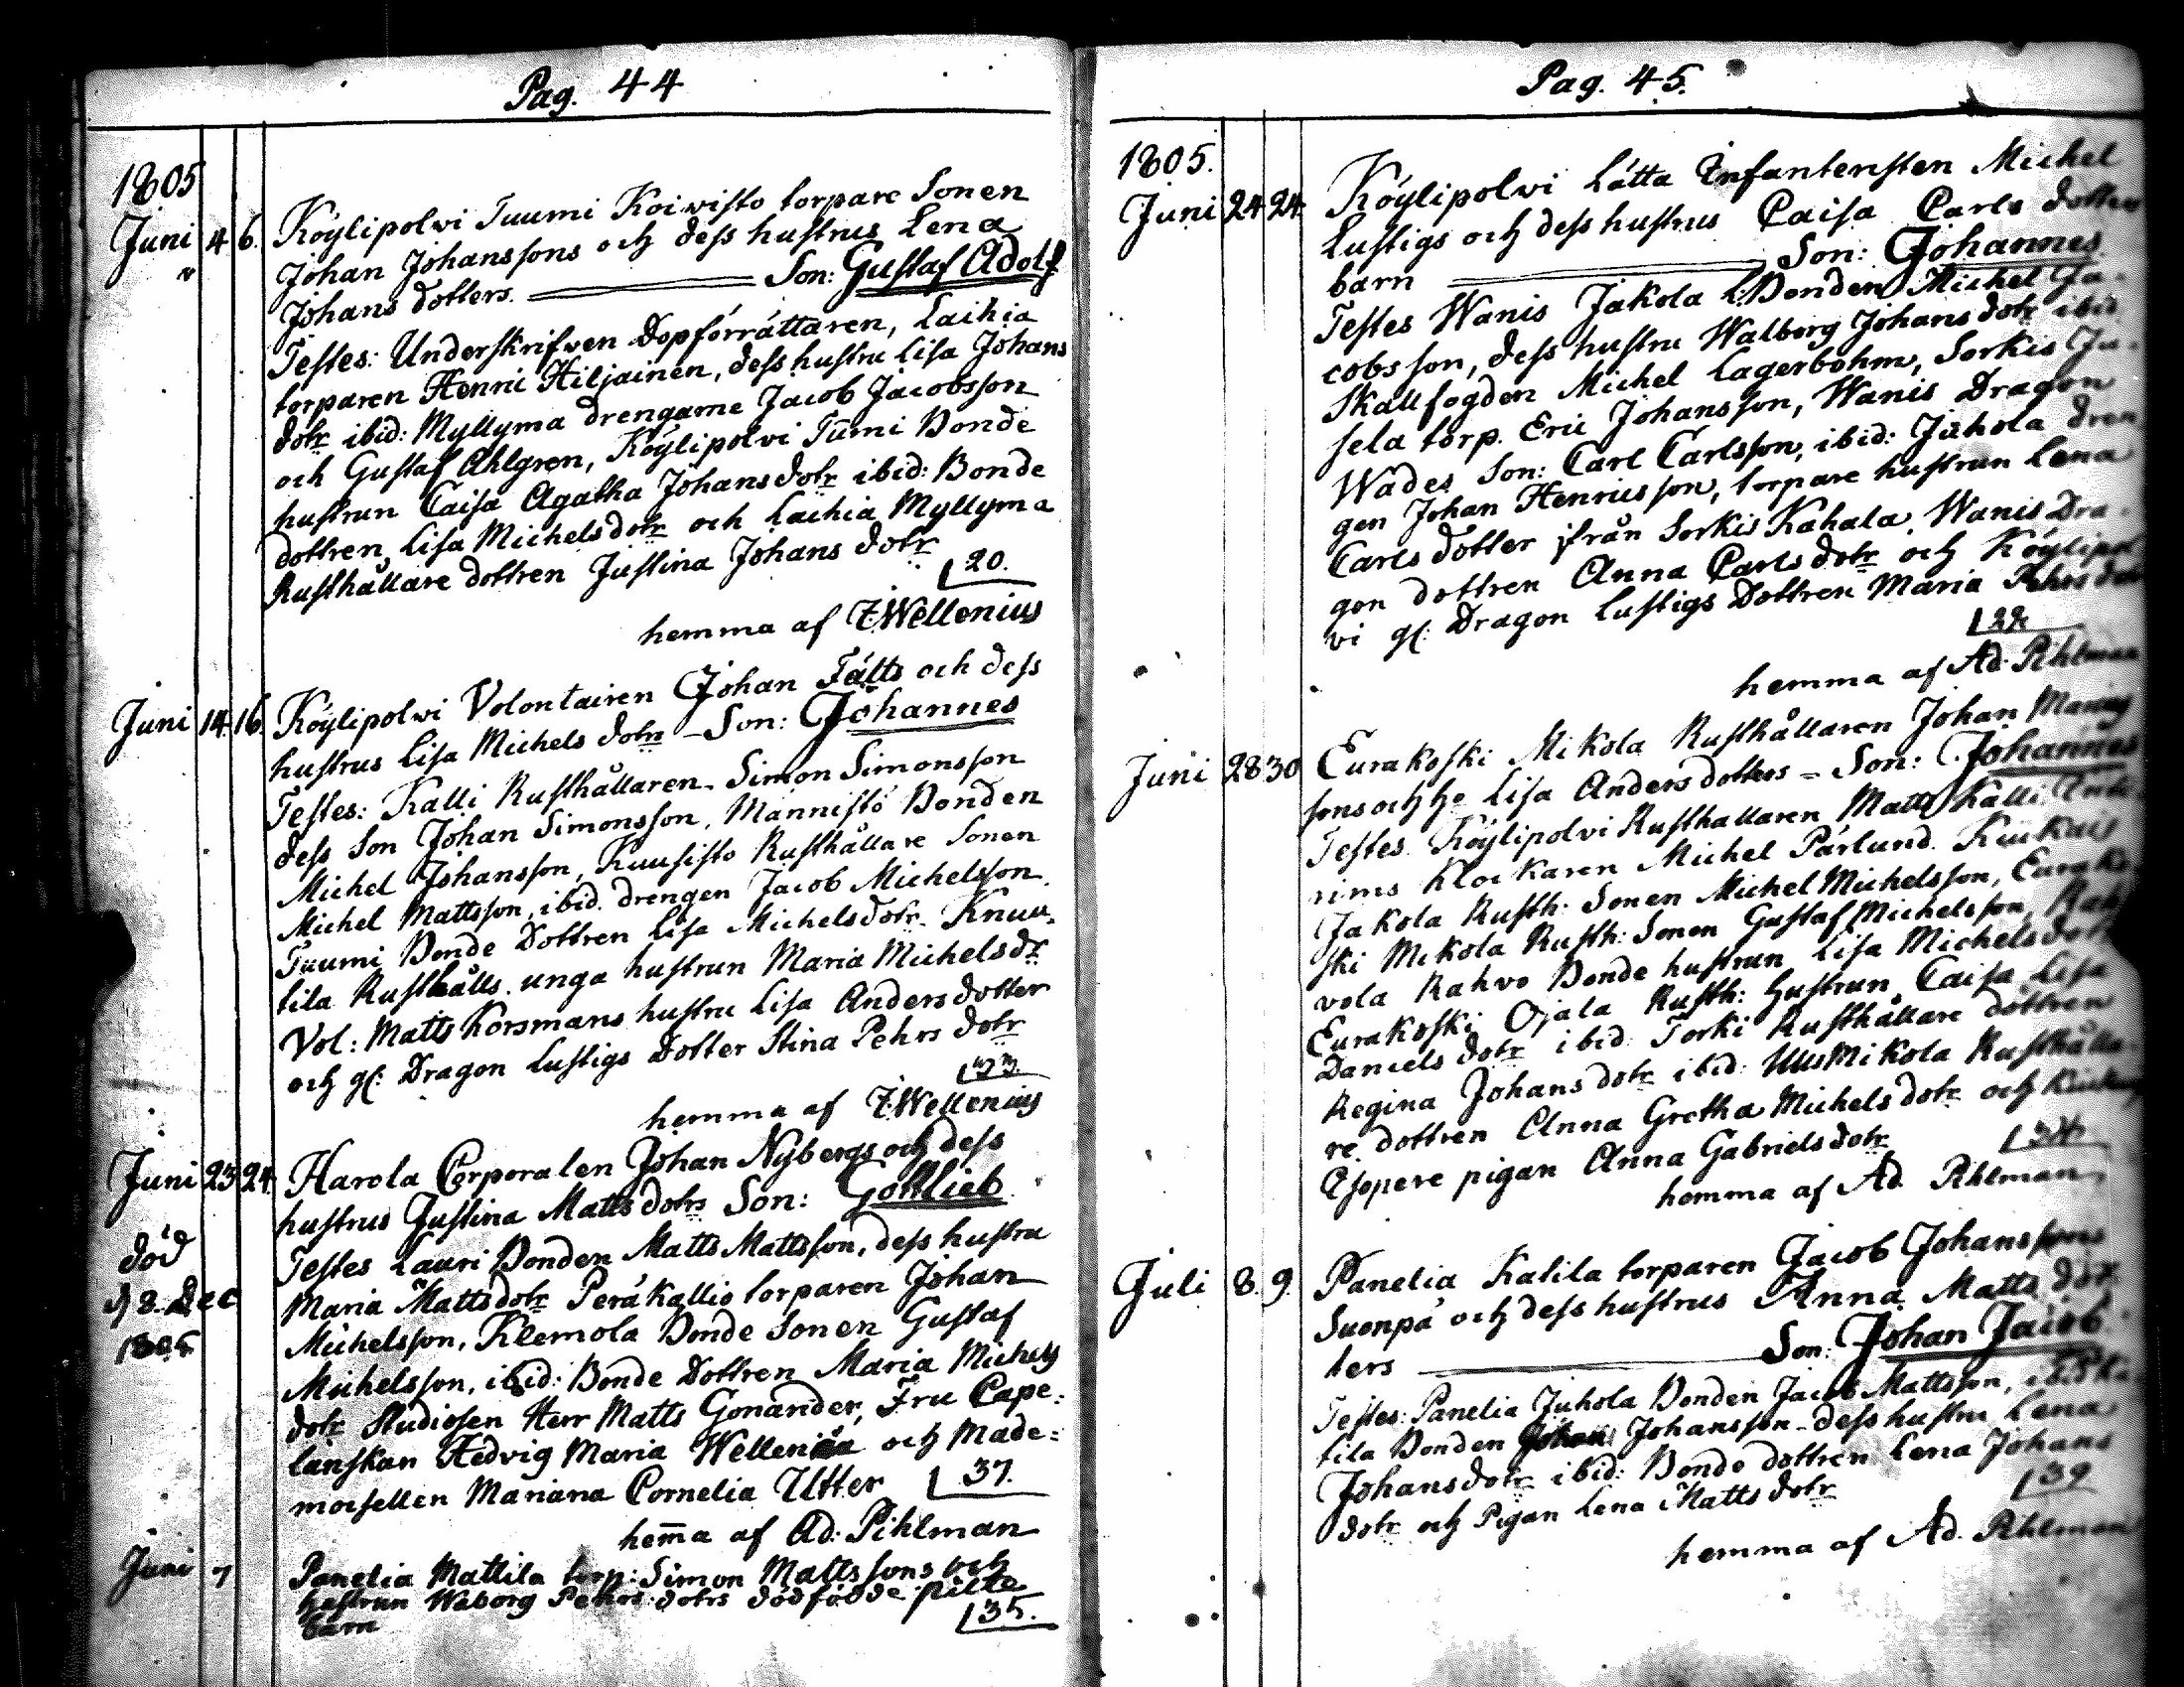 Pag. 44
1805
Juni 4 6. Köylipolvi Tuumi Koivisto torpare Sonen
Johan Johanssons och dess hustrus Lena
Johans dotters. Son: Gustaf Adolf
Testes: Underskrifven Dopförrättaren, Laihia
torparen Henric Hiljainen, dess hustru Lisa Johans
dotr ibid: Myllyma drengarne Jacob Jacobsson
och Gustaf Ahlgren, Köylipolvi Tumi Bonde
hustrun Caisa Agatha Johansdotr ibid: Bonde
dottren Lisa Michelsdotr och Laihia Myllyma
Rusthållare dottren Justina Johans dotr
20.
hemma af Z Wellenius
Juni 14. 16. Köylipolvi Volontairen Johan Fälts och dess
hustrus Lisa Michels dotrs - Son: Johannes
Testes: Kalli Rusthållaren Simon Simonsson
dess Son Johan Simonsson, Männistö Bonden
Michel Johansson, Kuusisto Rusthållare Sonen
Michel Mattsson, ibid. drengen Jacob Michelsson.
Tuumi Bonde Dottren Lisa Michelsdotr. Knuu-
tila Rusthålls. unga hustrun Maria Michelsdr
Vol: Matts Korsmans hustru Lisa Anders dotter
och gl: Dragon Lustigs Dotter Stina Pehrs dotr
33
hemma af Z Wellenius
Juni 23 24. Harola Corporalen Johan Nybergs och dess
hustrus Justina Matts dotrs Son: Gottlieb
Testes Lauri Bonden Matts Mattsson, dess hustru
död
Maria Mattsdotr Peräkallio torparen Johan
d 8. Dec
Michelsson, Klemola Bonde Sonen Gustaf
1805
Michelsson, ibid: Bonde Dottren Maria Michels
dotr Studiosen Herr Matts Gonander, Fru Cape-
lanskan Hedvig Maria Wellenia och Made=
moisellen Mariana Cornelia Utter 37.
hem̅a af Ad: Pihlman
Juni 7 Panelia Mattila torp: Simon Mattssons och
hustrun Waborg Pehrs dotrs dödfödde pilte
barn 35.
Pag. 45.
1805.
Juni 24 24. Köylipolvi Lätta Infanteristen Michel
Lustigs och dess hustrus Caisa Carls dotters
barn Son: Johannes
Testes Wanis Jakola L: Bonden Michel Ja-
cobsson, dess hustru Walborg Johans dotr ibid
Skallfogden Michel Lagerbohm, Sorkis Ju-
sela torp. Eric Johansson, Wanis Dragon
Wades Son: Carl Carlsson, ibid: Juhola dren
gen Johan Henricsson, torpare hustrun Lena
Carls dotter ifrån Sorkis Kahala, Wanis Dra-
gon dottren Anna Carls dotr och Köylipol
vi gl: Dragon Lustigs Dottren Maria Pehrs dotr
22
hemma af Ad: Pihlman
Juni 28 30 Eurakoski Mikola Rusthållaren Johan Mårtens
sons och ho Lisa Anders dotters - Son: Johannes
Testes. Köylipolvi Rusthållaren Matts Kalli
rims Klockaren Michel Pärlund. Kiukais
Jakola Rusth: Sonen Michel Michelsson, Eurako
ski Mikola Rusth: Sonen Gustaf Michelsson, Rah
vola Rahvo Bonde hustrun Lisa Michelsdotr
Eurakoski Ojala Rusth: hustrun Caisa Lisa
Daniels dotr ibid: Torki Rusthållare dottren
Regina Johans dotr ibid: UusMikola Rusthålla-
re dottren Anna Gretha Michels dotr och Kiukais
Esopere pigan Anna Gabriels dotr 34
hemma af Ad. Pihlman
Juli 8. 9. Panelia Katila torparen Jacob Johanssons
Suonpä och dess hustrus Anna Matts dot
ters Son: Johan Jacob
Testes: Panelia Juhola Bonden Jacob Mattsson, ibid Ka
tila Bonden Johan Johansson - dess hustru Lena
Johansdotr ibid: Bonde dottren Lena Johans
dotr och Pigan Lena Matts dotr 39
hemma af Ad. Pihlman